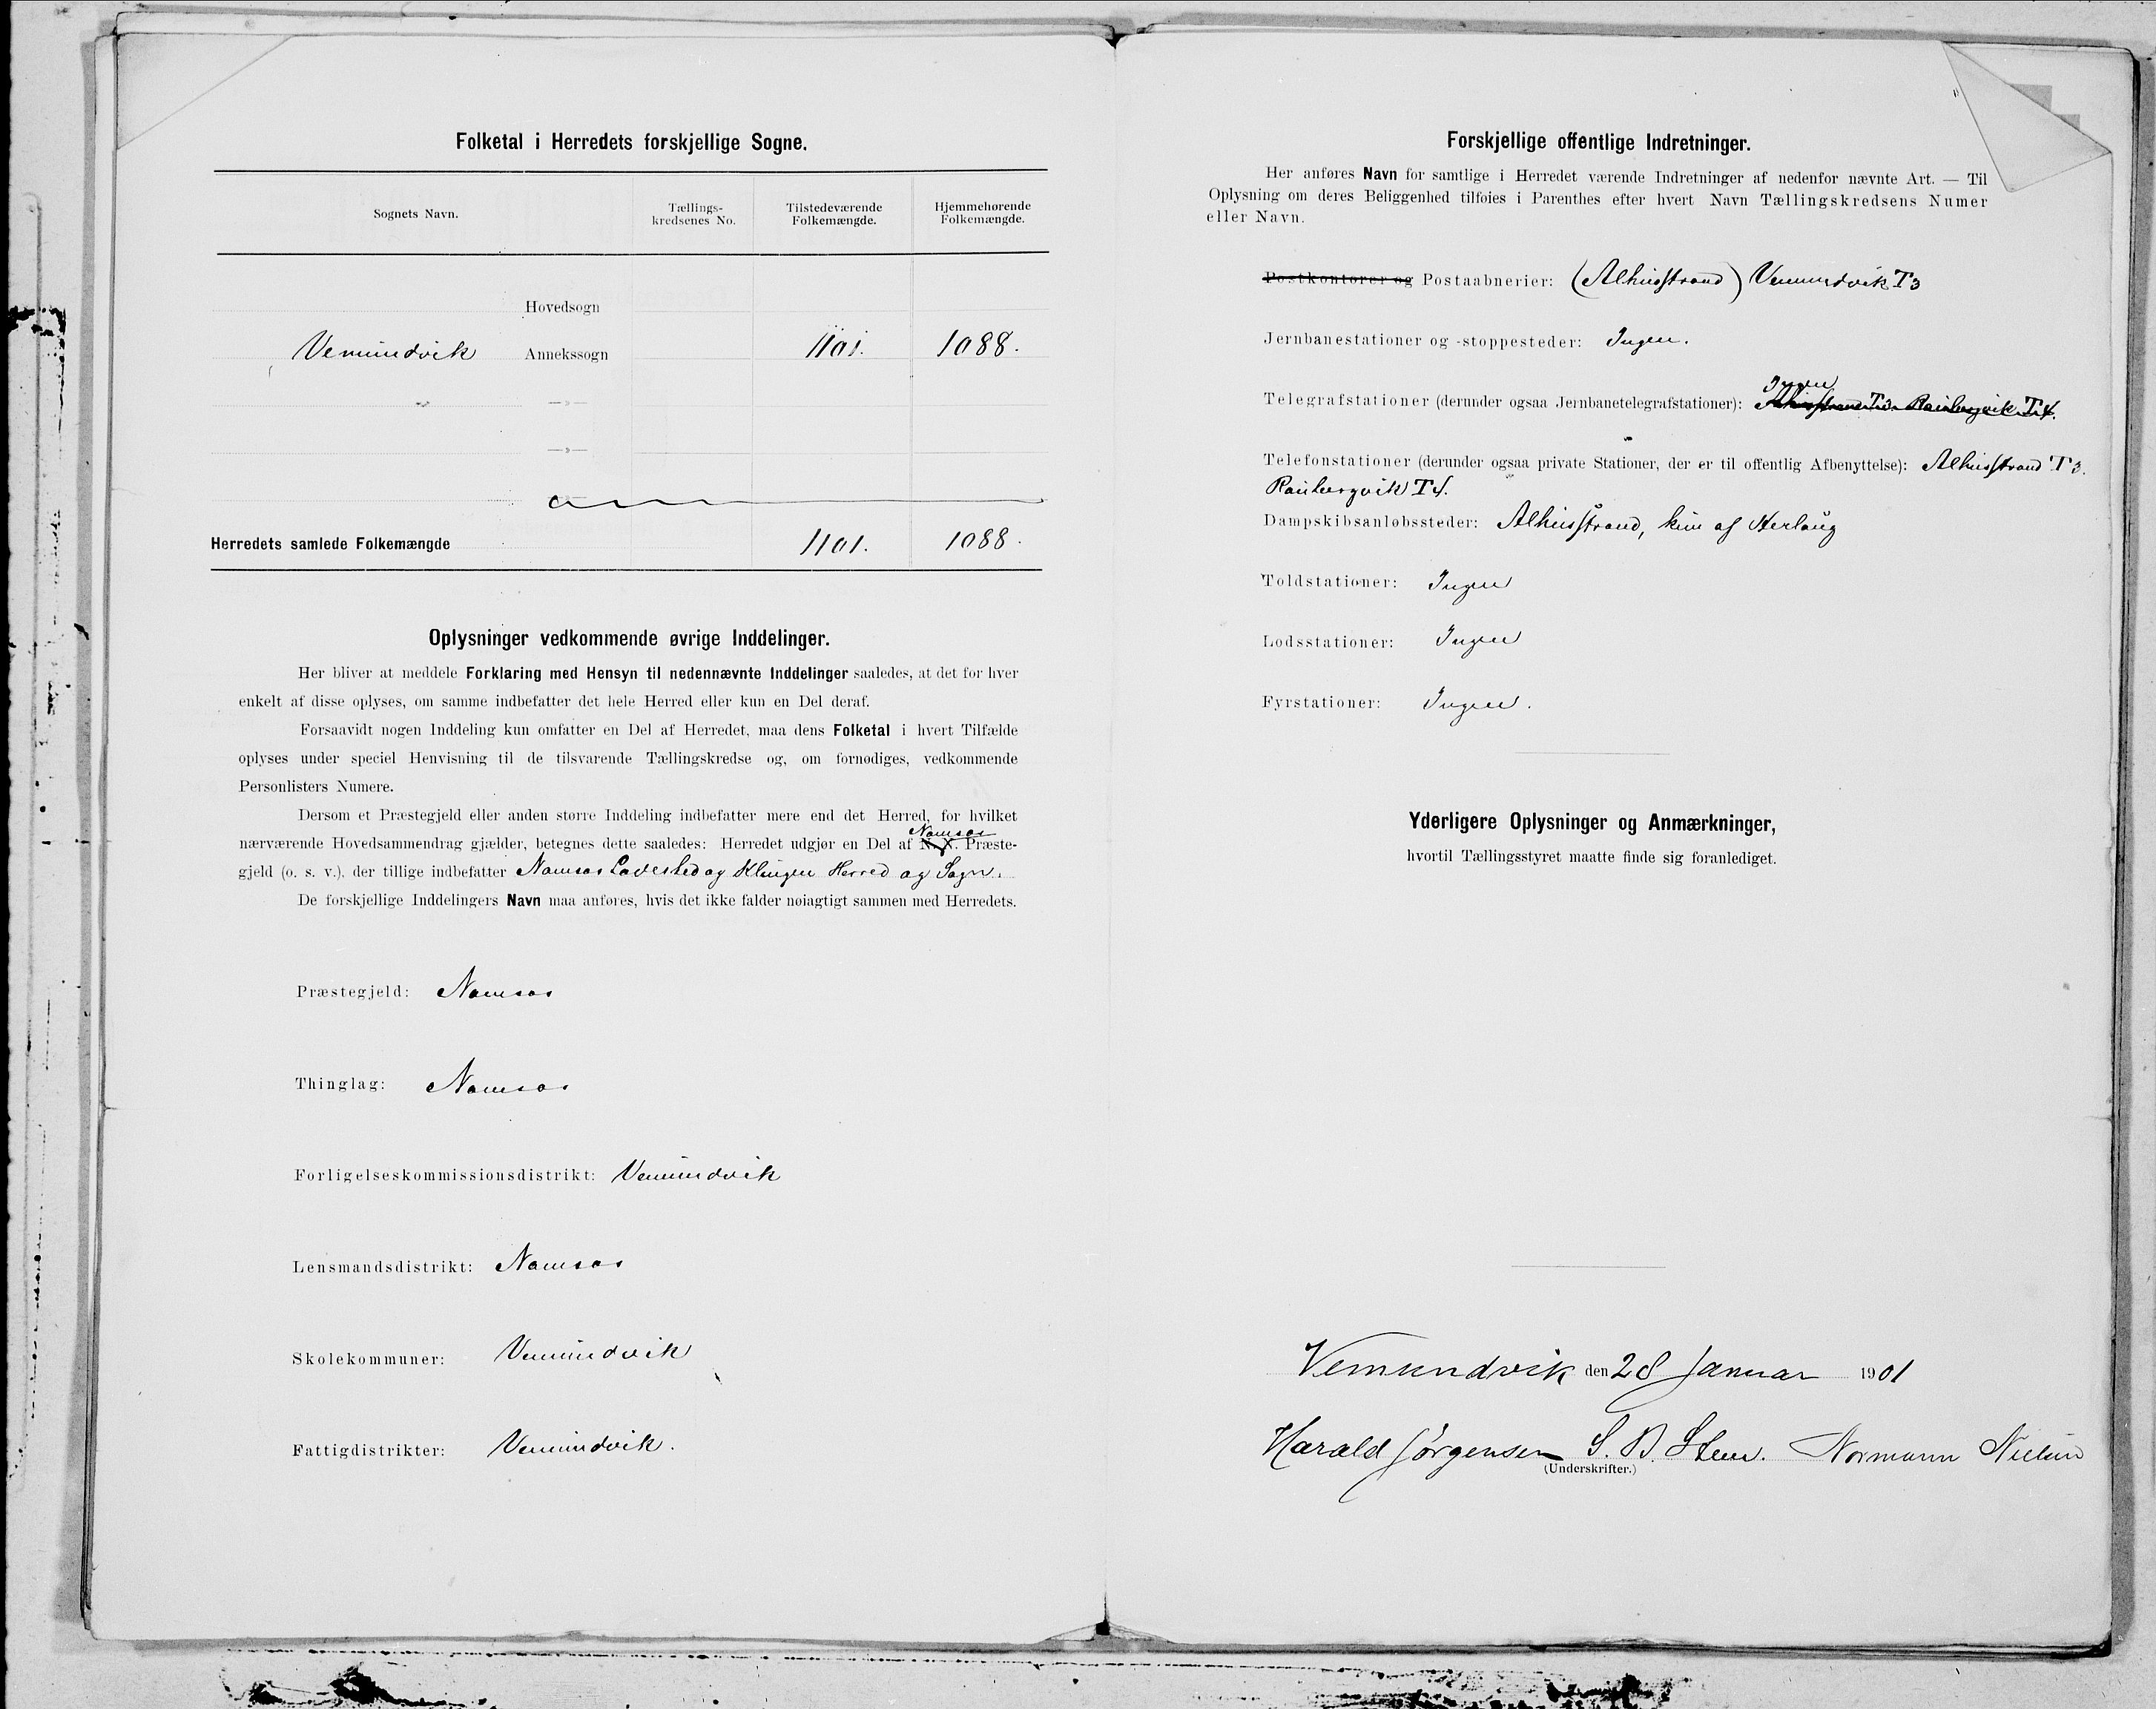 Folketal i Herredets forskjellige Sogne.
Sognets Navn.
Tællings-
kredsenes No.
Tilstedeværende
Folkemængde.
Hjemmehørende
Folkemængde.
Hovedsogn
Vemundvik Annekssogn 1101. 1088.
—»—
—»—
Herredets samlede Folkemængde 1101. 1088.
Oplysninger vedkommende øvrige Inddelinger.
Her bliver at meddele Forklaring med Hensyn til nedennævnte Inddelinger saaledes, at det for hver
enkelt af disse oplyses, om samme indbefatter det hele Herred eller kun en Del deraf.
Forsaavidt nogen Inddeling kun omfatter en Del af Herredet, maa dens Folketal i hvert Tilfælde
oplyses under speciel Henvisning til de tilsvarende Tællingskredse og, om fornødiges, vedkommende
Personlisters Numere.
Dersom et Præstegjeld eller anden større Inddeling indbefatter mere end det Herred, for hvilket
Namsos
nærværende Hovedsammendrag gjælder, betegnes dette saaledes: Herredet udgjør en Del af N. N. Præste-
gjeld (o. s. v.), der tillige indbefatter Namsos Ladested og Klingen Herred og Sogn.
De forskjellige Inddelingers Navn maa anføres, hvis det ikke falder nøiagtigt sammen med Herredets.
Præstegjeld: Namsos
Thinglag: Namsos
Forligelseskommissionsdistrikt: Vemundvik
Lensmandsdistrikt: Namsos
Skolekommuner: Vemundvik
Fattigdistrikter: Vemundvik.
Forskjellige offentlige Indretninger.
Her anføres Navn for samtlige i Herredet værende Indretninger af nedenfor nævnte Art. — Til
Oplysning om deres Beliggenhed tilføies i Parenthes efter hvert Navn Tællingskredsens Numer
eller Navn.
Postkontorer og Postaabnerier: (Alhusstrand) Vemundvik T3
Jernbanestationer og -stoppesteder: Ingen.
Ingen
Telegrafstationer (derunder ogsaa Jernbanetelegrafstationer): Alhusstrand T3. Raubergvik T4.
Telefonstationer (derunder ogsaa private Stationer, der er til offentlig Afbenyttelse): Alhusstrand T3.
Raubergvik T4.
Dampskibsanløbssteder: Alhusstrand, kun af Herlaug
Toldstationer: Ingen
Lodsstationer: Ingen
Fyrstationer: Ingen.
Yderligere Oplysninger og Anmærkninger,
hvortil Tællingsstyret maatte finde sig foranlediget.
Vemundvik den 28 Januar 1901
Harald Jørgensen S. B. Sten. Normann Nielsen
(Underskrifter.)